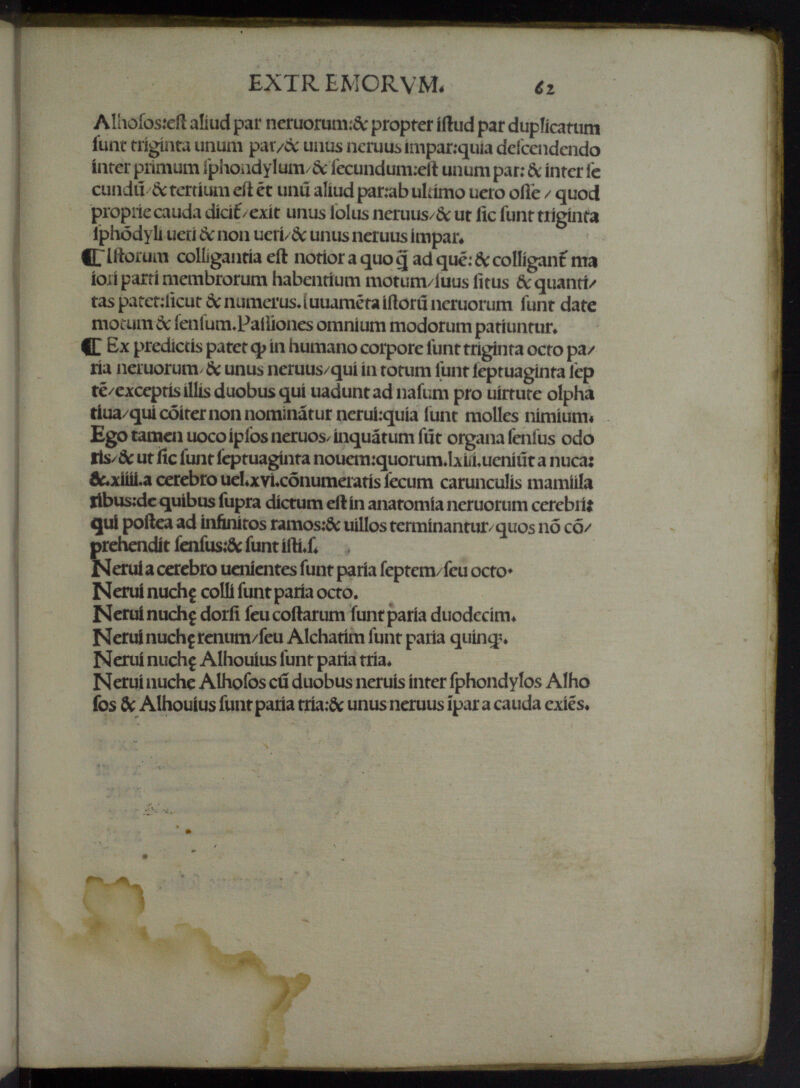 EXTREMORVM. 62
Alhoſos:eſt aliud par neruorum:& propter iſtud par duplicatum
ſunt triginta unum par/& unus neruus impar:quia deſcendendo
inter primum ſphondylum/& ſecundum:eſt unum par: & inter ſe
cundū/& tertium eſt ēt unū aliud par:ab ultimo uero oſſe / quod
proprie cauda dicit̄/exit unus ſolus neruus/& ut ſic ſunt triginta
ſphōdyli ueri & non ueri/& unus neruus impar.
¶ Iſtorum colligantia eſt notior a quo q̄ ad quē: & colligant̄ ma
iori parti membrorum habentium motum/ſuus ſitus & quanti/
tas patet:ſicut & numerus. Iuuamēta iſtorū neruorum ſunt dare
motum & ſenſum. Paſſiones omnium modorum patiuntur.
¶ Ex predictis patet ꝙ in humano corpore ſunt triginta octo pa/
ria neruorum/& unus neruus/qui in totum ſunt ſeptuaginta ſep
tē/exceptis illis duobus qui uadunt ad naſum pro uirtute olpha
tiua/qui cōiter non nominātur nerui:quia ſunt molles nimium.
Ego tamen uoco ipſos neruos/inquātum ſūt organa ſenſus odo
ris/& ut ſic ſunt ſeptuaginta nouem:quorum.lxiii.ueniūt a nuca:
&.xiiii.a cerebro uel.xvi.cōnumeratis ſecum carunculis mamilla
ribus:de quibus ſupra dictum eſt in anatomia neruorum cerebri:
qui poſtea ad infinitos ramos:& uillos terminantur/quos nō cō/
prehendit ſenſus:& ſunt iſti.ſ.
Nerui a cerebro uenientes ſunt paria ſeptem/ſeu octo.
Nerui nuchę colli ſunt paria octo.
Nerui nuchę dorſi ſeu coſtarum ſunt paria duodecim.
Nerui nuchę renum/ſeu Alchatim ſunt paria quinqȝ.
Nerui nuchę Alhouius ſunt paria tria.
Nerui nuche Alhoſos cū duobus neruis inter ſphondylos Alho
ſos & Alhouius ſunt paria tria:& unus neruus īpar a cauda exiēs.